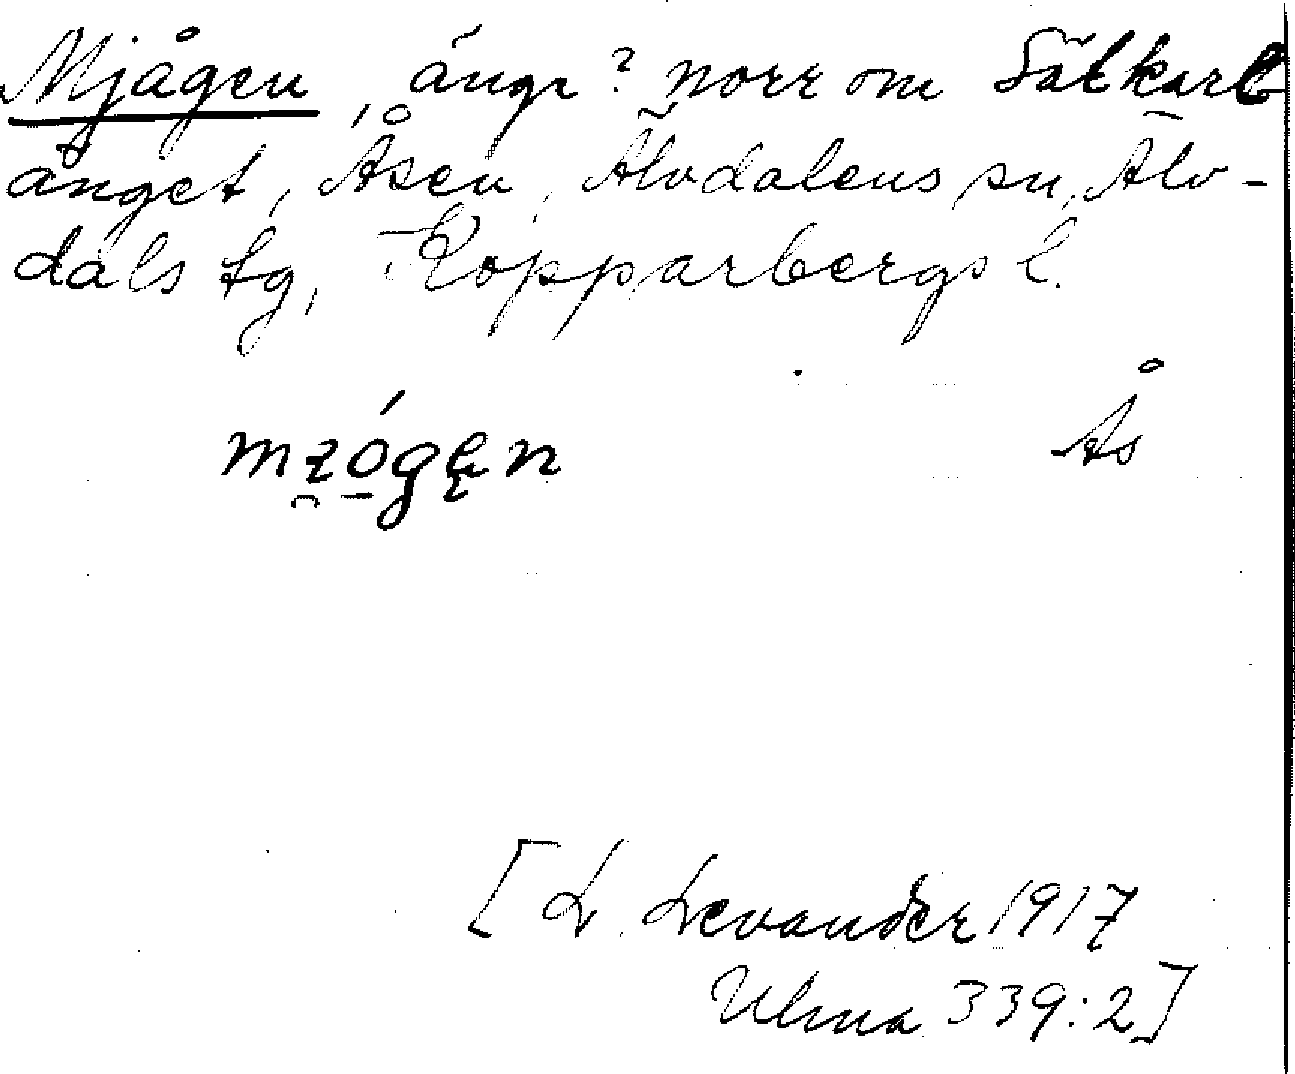 Mjågen, ängr? norr om Sätkarl
änget, Åsen, Älvdalens sn, Älv-
dals tg, Kopparbergs l.
Ås
[L. Levander 1917
Ulma 339:2]